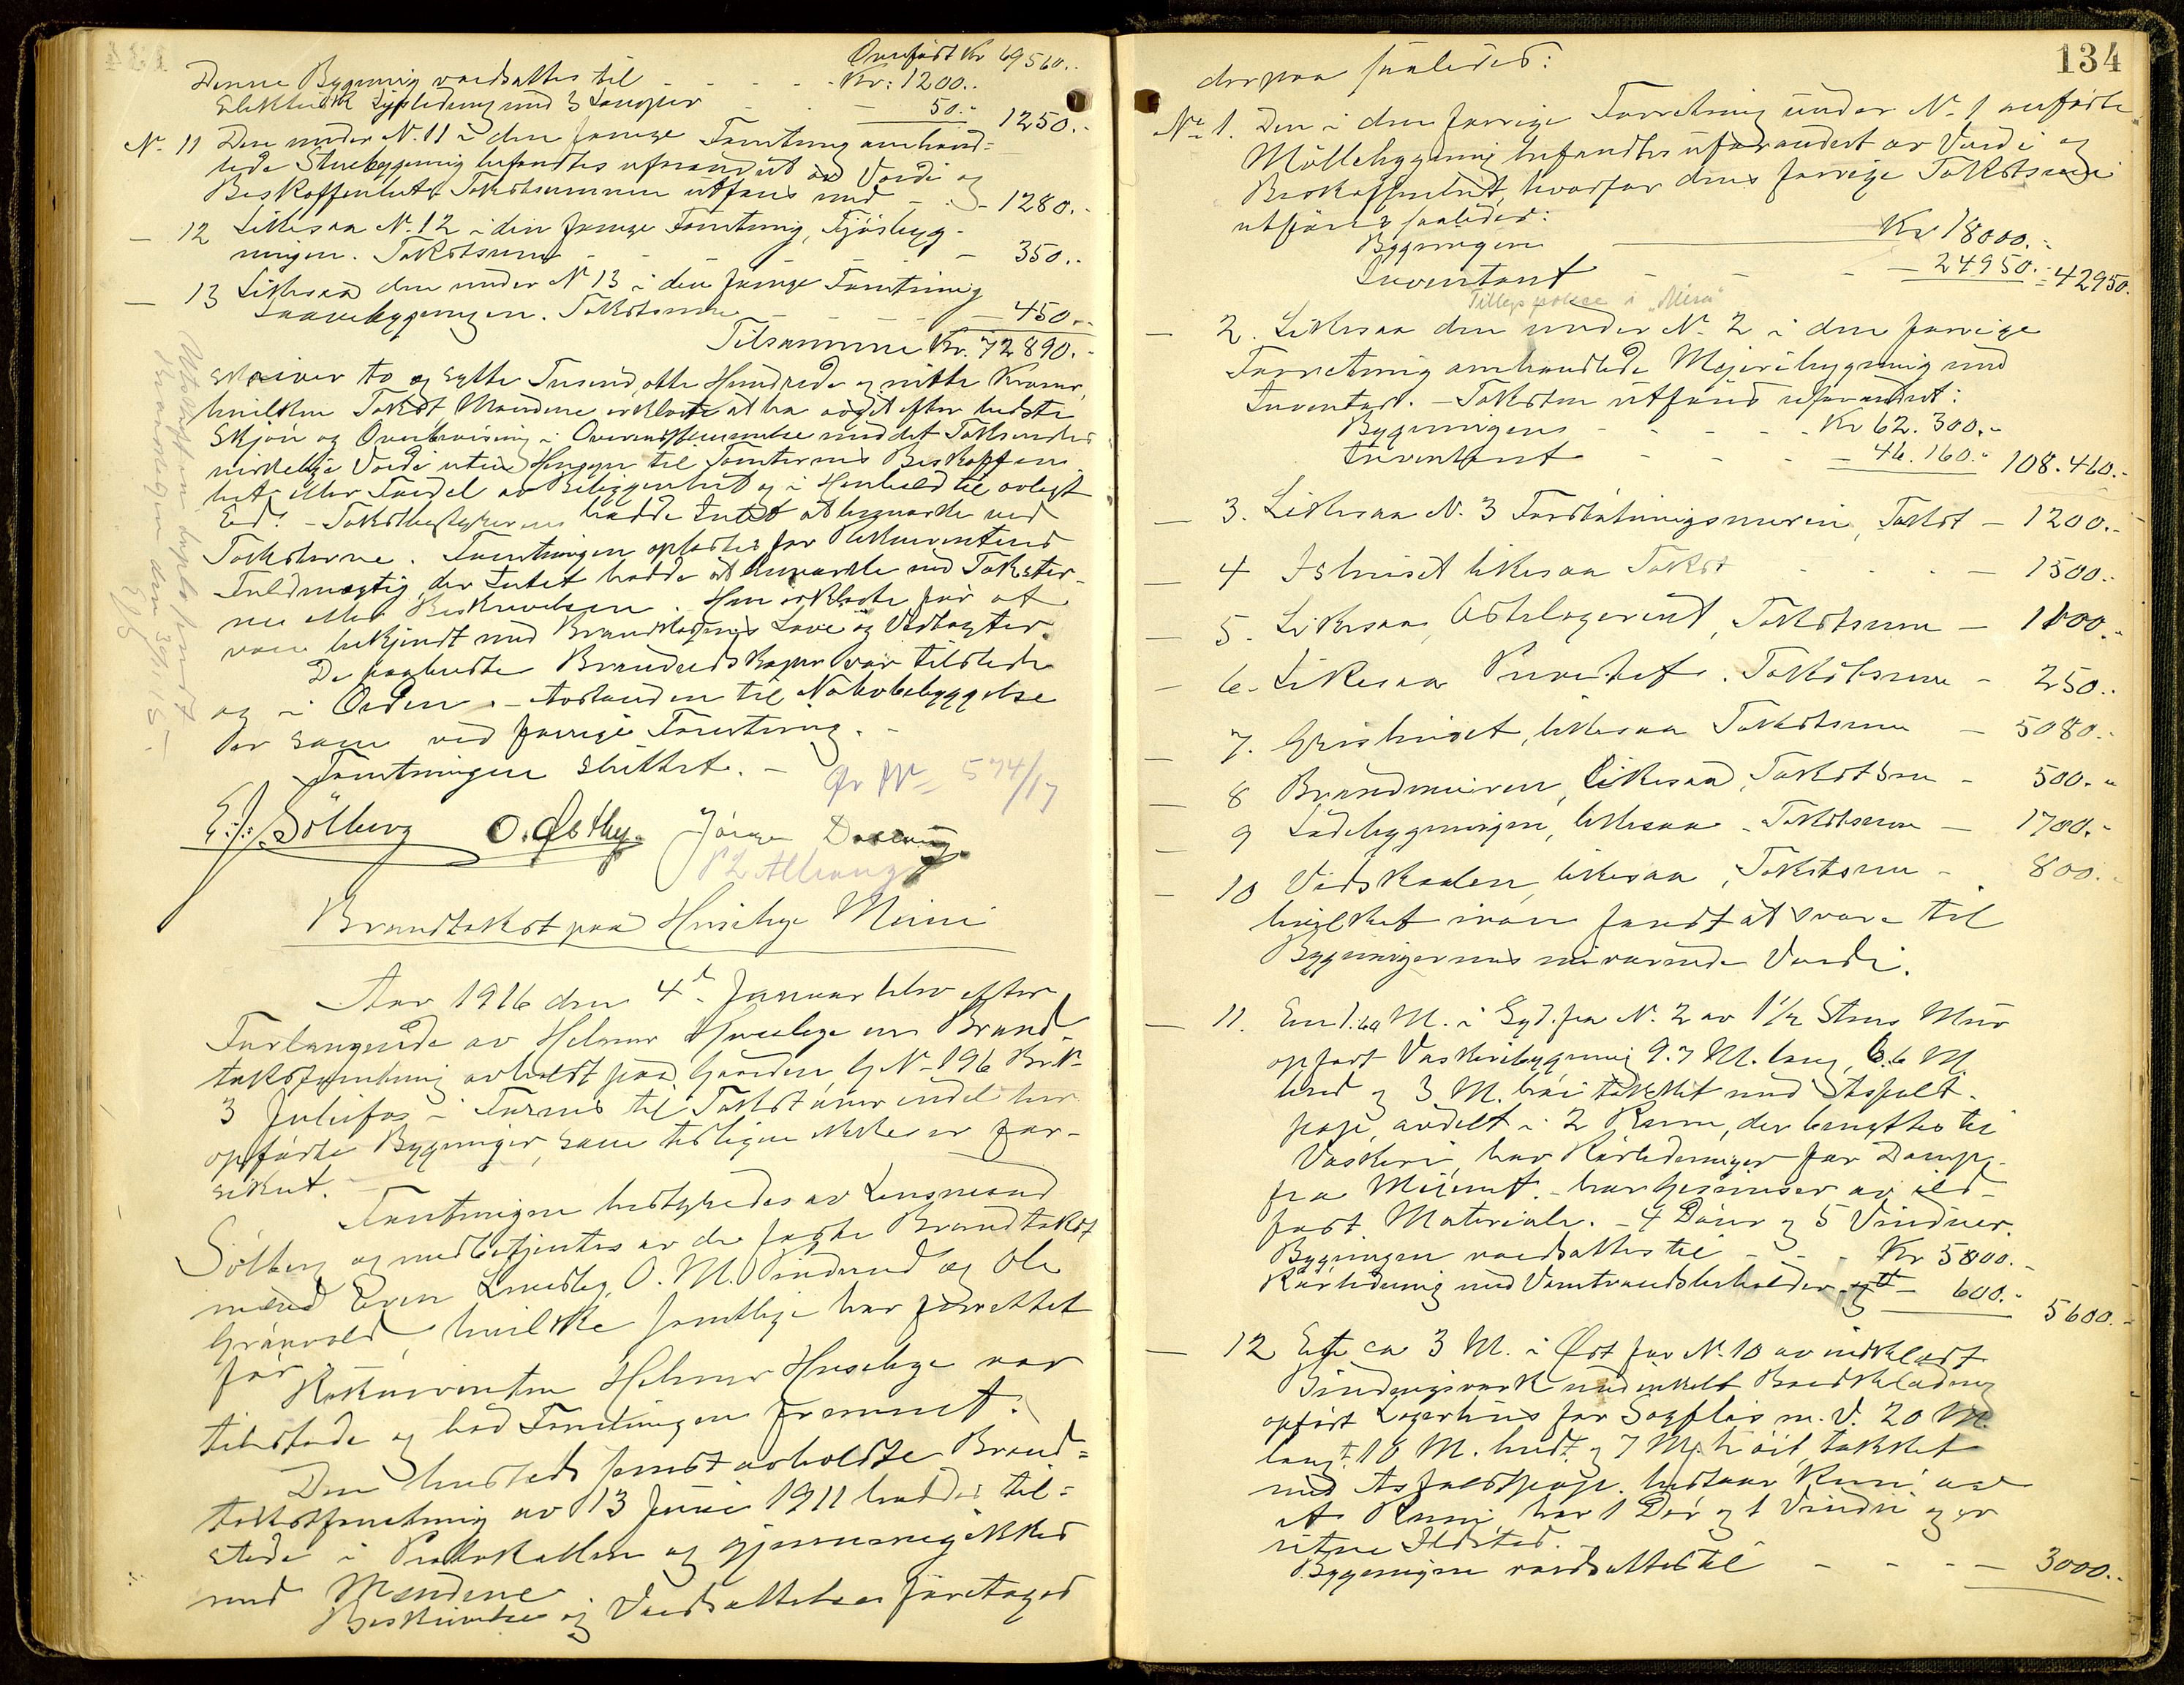 Overført Kr 69560..
Denne Bygning værdsattes til - - - - Kr: 1200..
Elektrisk Lysledning med 3 Lamper - - — 50.- 1250.-
No 11 Den under N. 11 i den forrige Forretning omhand=
lede Stuebygning befandtes uforandret av Værdi og
Beskaffenhet. Takstsummen utføres med - . - 1280.-
— 12 Likesaa N. 12 i den forrige Forretning, Fjøsbyg-
ningen. Takstsum - - - - — 350..
— 13 Likesaa den under N 13 i den forrige Forretning
Laavebygningen. Takstsum - - - — 450.-
Tilsammen Kr. 72890.-
skriver to og sytti Tusend, otte Hundrede og nitti Kroner,
hvilken Takst Mændene erklærte at ha avgit efter bedste
Skjøn og Overbevisning i Overensstemmelse med det Takseredes
virkelige Værdi uten Hensyn til Tomternes Beskaffen-
het eller Fordel av Beliggenhet og i Henhold til avlagt
Ed. - Takstbestyreren hadde Intet at bemærke ved
Taksterne. Forretningen oplæstes for Rekvirentens
Fuldmægtig, der Intet hadde at bemærke ved Takster-
ne eller Beskrivelsen. Han erklærte før at
være bekjendt med Brandkassens Love og Vedtægter.
De paabudte Brandredskaper var tilstede
og i Orden. - Avstanden til Nabobebyggelse
er som ved forrige Forretning. -
Forretningen sluttet. -
Gr No 574/17
E. J. Sølberg O. Østby. Jørgen
Brandtakst paa Huselye Meieri
Aar 1916 den 4de Januar blev efter
Forlangende av Helmer Huselye en Brand-
takstforretning avholdt paa Gaarden G. No 196 Br. No
3 Julufos i Furnes til Takst over endel her
opførte Bygninger, som tidligere ikke er for-
sikret.
Forretningen bestyredes av Lensmand
Sølberg og medbetjentes av de faste Brandtakst
mænd Even Lundby, O. M. Rindrud og Ole
Grønvold, hvilke samtlige har forrettet
før. Rekvirenten Helmer Huselye var
tilstede og bad Forretningen fremmet.
Den hersteds senest avholdte Brand=
takstforretning av 13 Juni 1911 havdes til=
stede i Protokollen og gjennemgikkes
med Mændene
Beskrivelse og Værdsættelse foretages
134
derpaa saaledes:
No 1. Den i den forrige Forretning under N. 1 anførte
Møllebygning befandtes uforandret av Værdi og
Beskaffenhet, hvorfor dens forrige Takstsum
utføres saaledes:
Bygningen Kr 18000.-
Inventaret - - - — 24950.- 42950.
Tillægspolice i "Mjøsa"
— 2. Likesaa den under N. 2 i den forrige
Forretning omhandlede Mejeribygning med
Inventar. - Taksten utføres uforandret:
Bygningens - - - - Kr 62.300.-
Inventaret - - - - 46.160.- 108.460.-
— 3. Likesaa N. 3 Forstøtningsmuren, Takst — 1200.-
— 4 Ishuset likesaa Takst - - - — 1500.-
— 5. Likesaa Ostelageret, Takstsum — 1000.-
— 6. Likesaa Takstsum - 250..
— 7. Grishuset, likesaa Takstsum — 5080.-
— 8 Brandmuren, Likesaa, Takstsum - 500.-
— 9 Ladebygningen, likesaa - Takstsum — 1700.-
— 10 Vedskaalen, likesaa, Takstsum - 800.-
hvilket man fandt at svare til
Bygningernes nuværende Værdi.
— 11. En 1.60 M. i Syd. fra N. 2 av 1 1/2 Stens Mur
opført Vaskeribygning 9.7 M. lang, 6.6 M.
bred og 3 M. høi, tækket med Asfalt-
pap, avdelt i 2 Rum, der benyttes til
Vaskeri, har Rørledninger for Damp
fra Meieriet. - har Gesimser av ild-
fast Materiale. - 4 Døre og 5 Vinduer.
Bygningen værdsattes til - - - Kr 5000.-
Rørledning med Varmtvandsbeholder - 600.- 5600.-
— 12 Et ca 3 M. i Øst for N. 10 av indklædt
Bindingsverk med enkelt Bordklædning
opført Lagerhus for Sagflis m. v. 20 M.
langt, 10 M. bredt og 7 M. høit, tækket
med Asfaltpap. bestaar kun av
et Rum, har 1 Dør og 1 Vindu og er
uten Ildsted.
Bygningen værdsattes til - - - — 3000.-